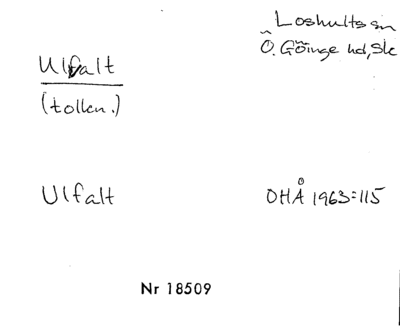 Loshults sn
Ö. Göinge hd, Sk
Ulfalt
(tolkn.)
Ulfalt
OHÅ 1963:115
Nr 18509